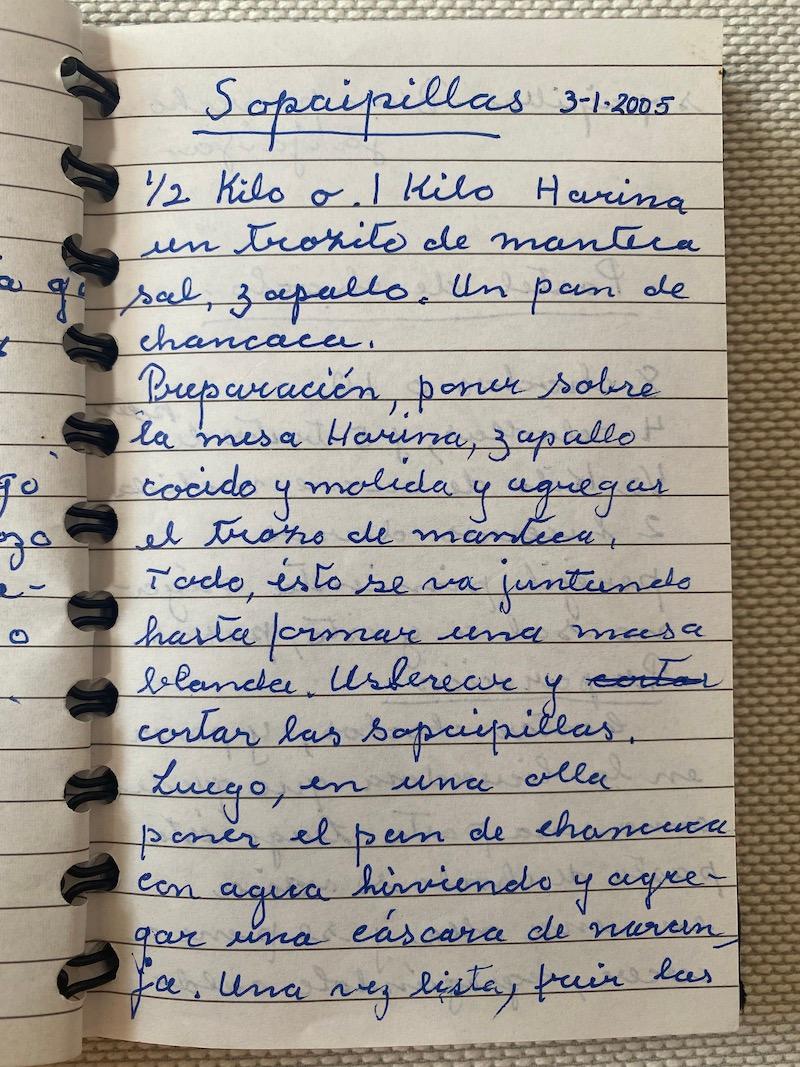 Sopaipillas 3-1-2005
1/2 Kilo o .1 Kilo Harina
un trozito de manteca
sal, zapallo. Un pan de
chancaca.
Preparación, poner sobre
la mesa Harina, zapallo
cocido y molida y agregar
el trozo de manteca.
Todo, ésto se va juntando
hasta formar una masa
blanda. Uslerear y cortar
cortar las sopaipillas.
Luego, en una olla
poner el pan de chancaca
con agua hirviendo y agre-
gar una cáscara de naran
ja. Una vez lista, freir las
a go
go
ozo
e-
o